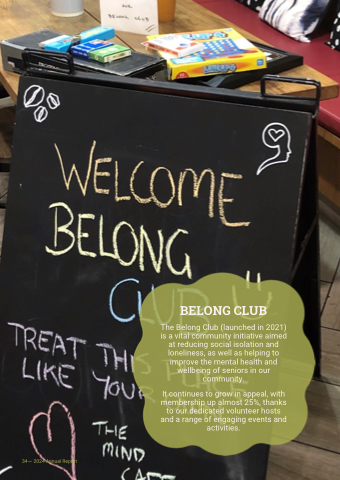 OUR
BELONG CLUB
WELCOME
BELONG
CLUB
TREAT THIS PLACE
LIKE YOUR
THE
MIND
CAFE
BELONG CLUB
The Belong Club (launched in 2021)
is a vital community initiative aimed
at reducing social isolation and
loneliness, as well as helping to
improve the mental health and
wellbeing of seniors in our
community.
It continues to grow in appeal, with
membership up almost 25%, thanks
to our dedicated volunteer hosts
and a range of engaging events and
activities.
34— 2024 Annual Report